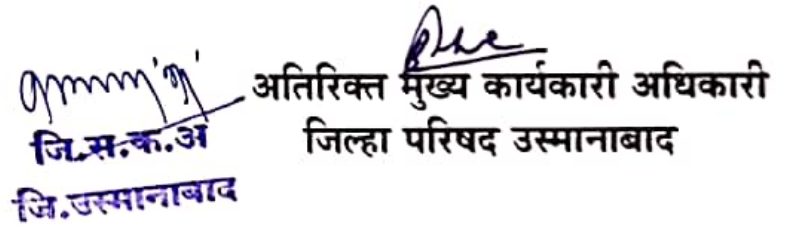 अतिरिक्त मुख्य कार्यकारी अधिकारी
जिल्हा परिषद उस्मानाबाद
जि.स.क.अ
जि.उस्मानाबाद